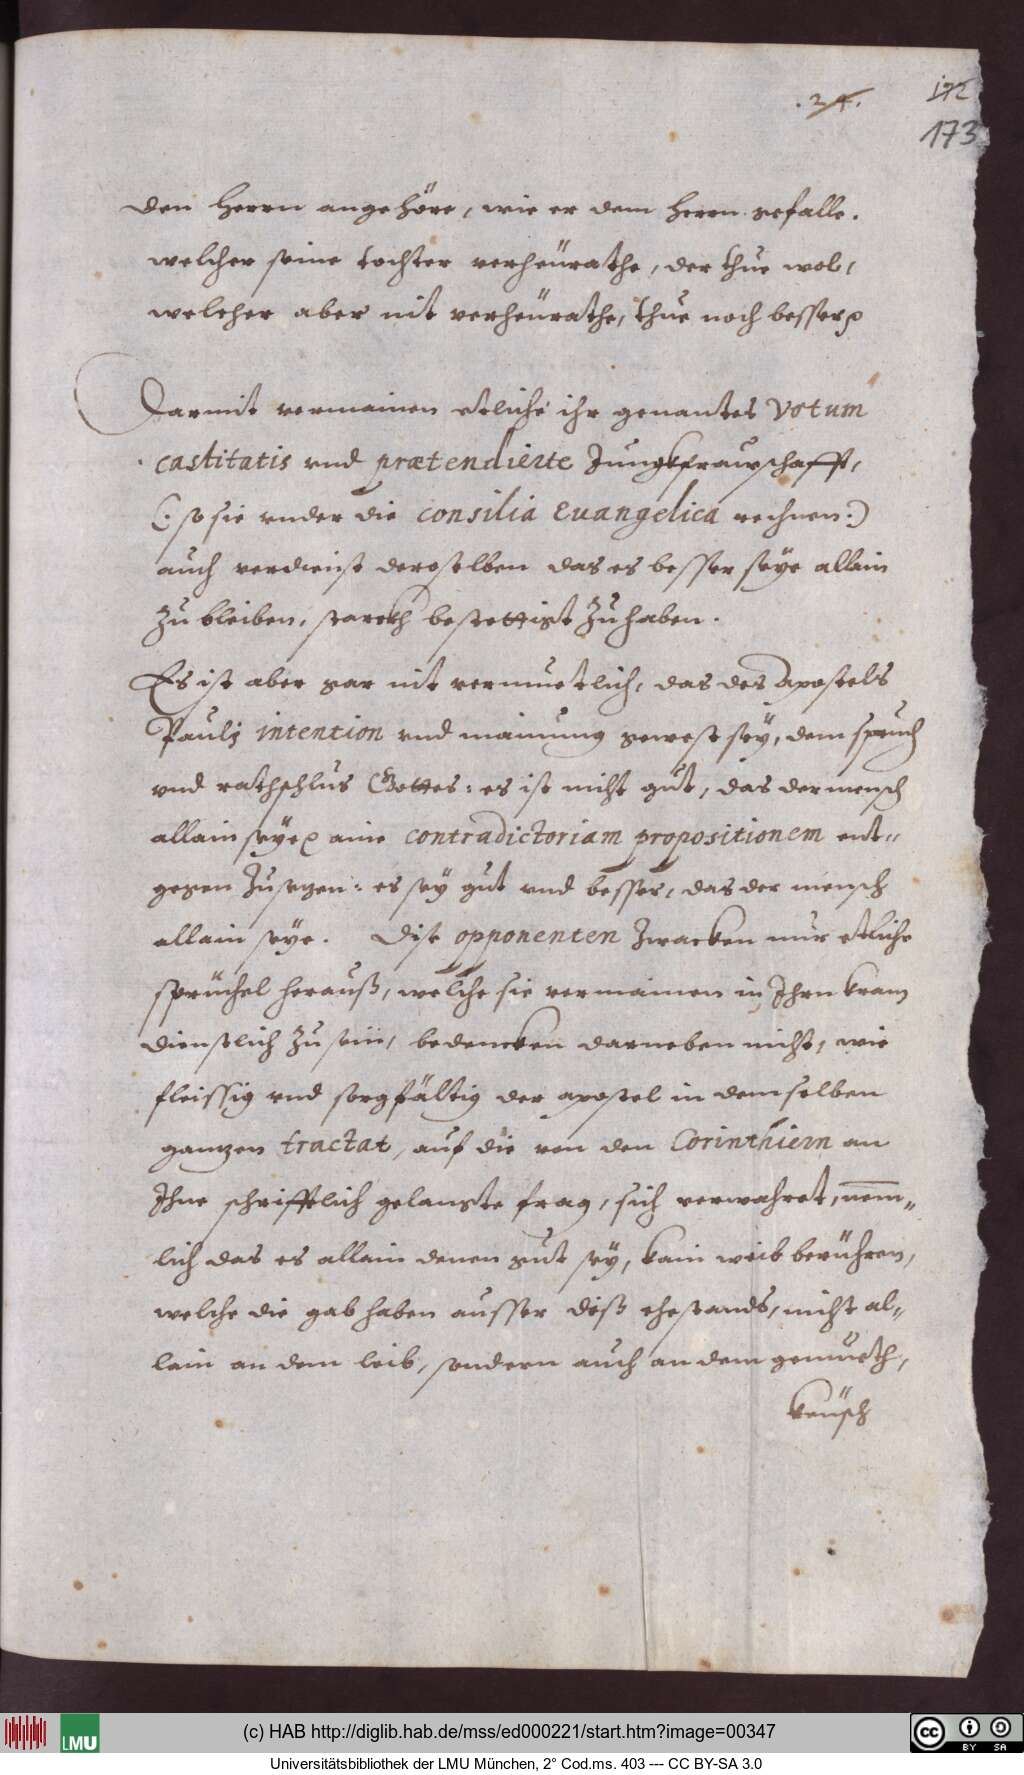 .24.
172
173
den Herrn angehöre, wie er dem Herrn gefalle.
welcher seine tochter verheürathe, der thue wol,
welcher aber nit verheürathe, thue noch besser
Darmit vermainen etliche ihr genantes Votum
castitatis vnd prætendierte Jungkfrawschafft,
(: so sie vnder die consilia Euangelica rechnen :)
auch verdienst deroselben das es besser seye allain
zu bleiben, starckh bestettigt zu haben.
Es ist aber gar nit vermuetlich, das des Apostels
Paulj intention vnd mainung gewest seÿ, dem spruch
vnd rathschlus Gottes: es ist nicht gut, das der mensch
allain seÿe aine contradictoriam propositionem ent=
gegen zusezen: es seÿ gut vnd besser, das der mensch
allain seÿe. Dise opponenten zwacken nur etliche
sprüchel herauß, welche sie vermainen in Ihrn kram
dienstlich zu sein, bedencken darneben nicht, wie
fleissig vnd sorgfältig der apostel in demselben
gantzen tractat, auf die von den Corinthiern an
Ihne schrifftlich gelangte frag, sich verwahret, nem=
lich das es allain denen gut seÿ, kain weib berühren,
welche die gab haben ausser deß ehestands, nicht al=
lain an dem leib, sondern auch an dem gemüeth,
keüsch
(c) HAB http://diglib.hab.de/mss/ed000221/start.htm?image=00347
LMU
BY SA
Universitätsbibliothek der LMU München, 2° Cod.ms. 403 --- CC BY-SA 3.0